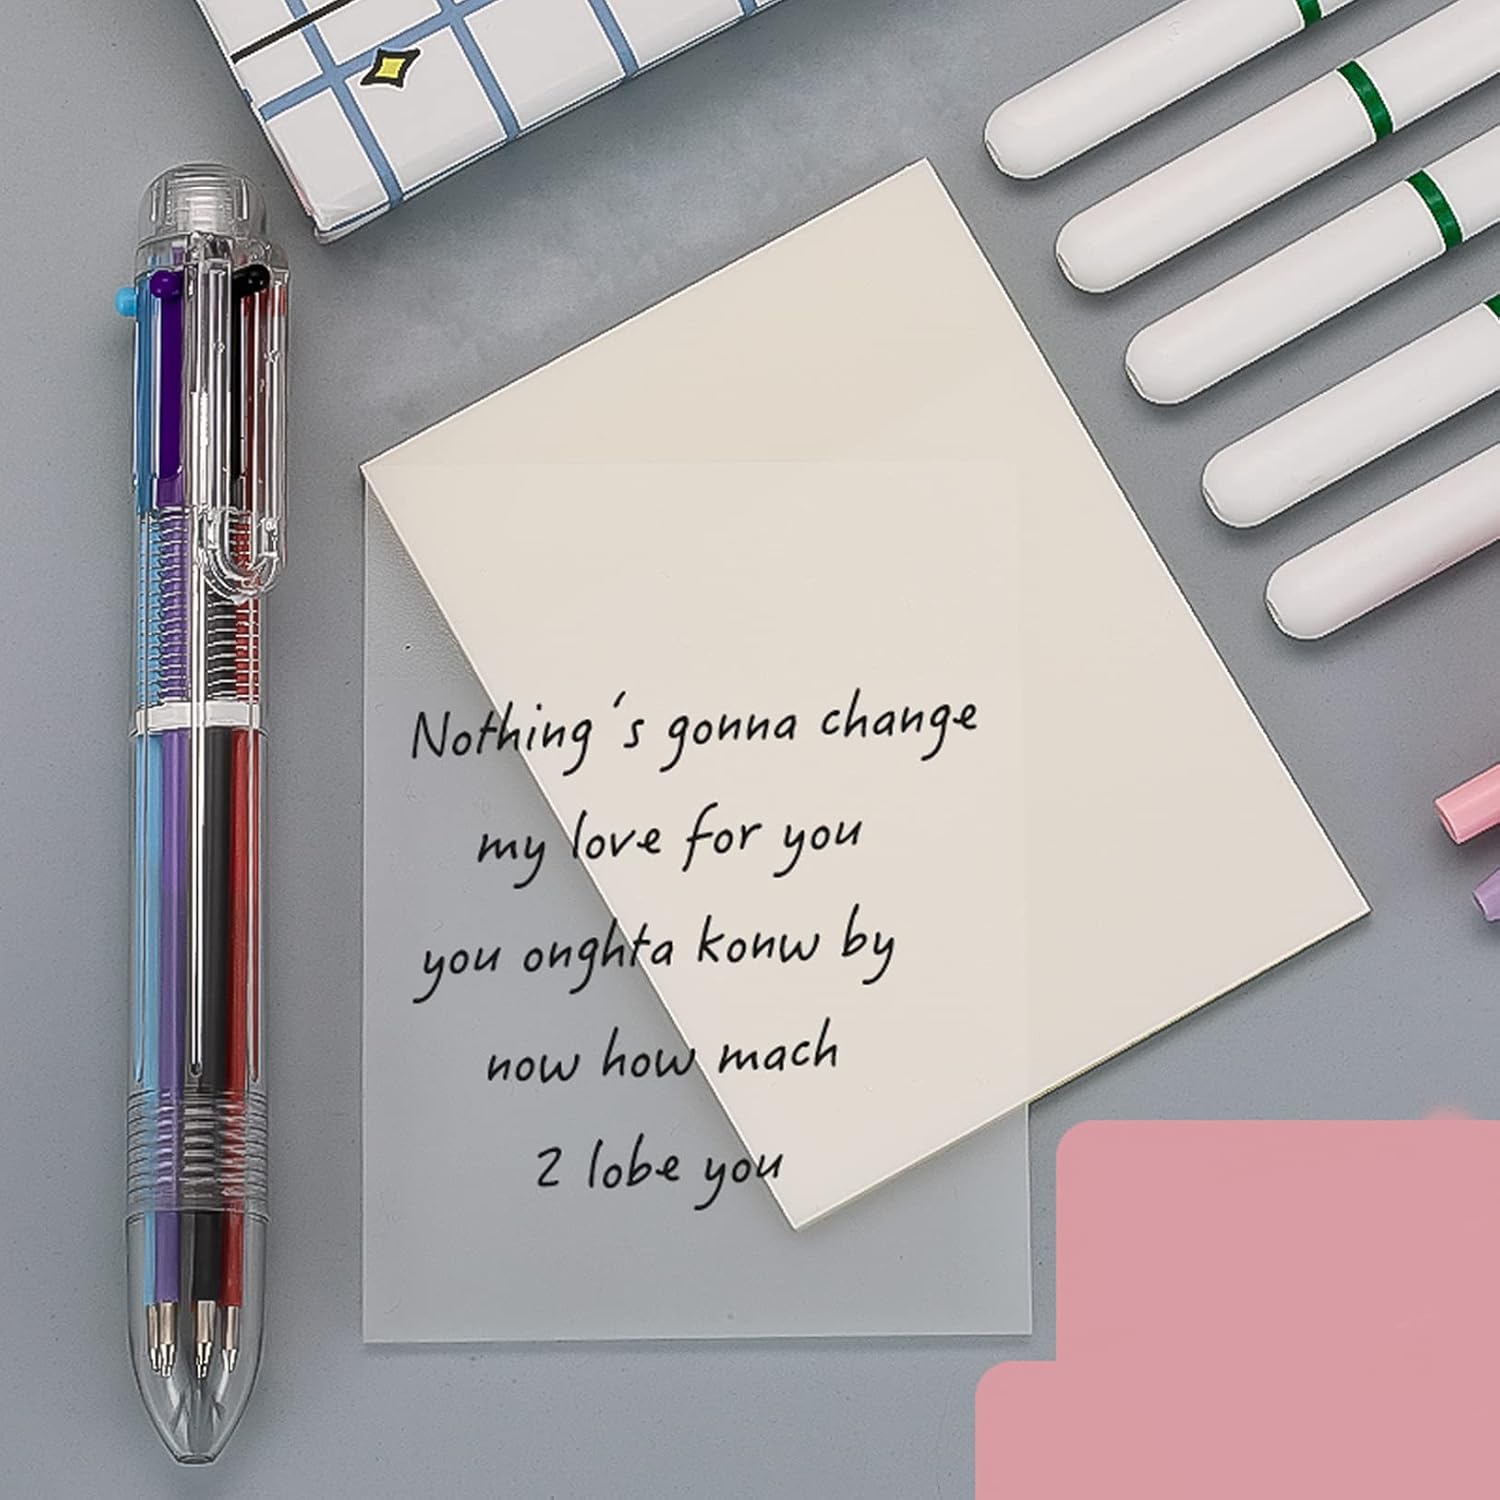 Nothing's gonna change
my love for you
you onghta konw by
now how mach
2 lobe you